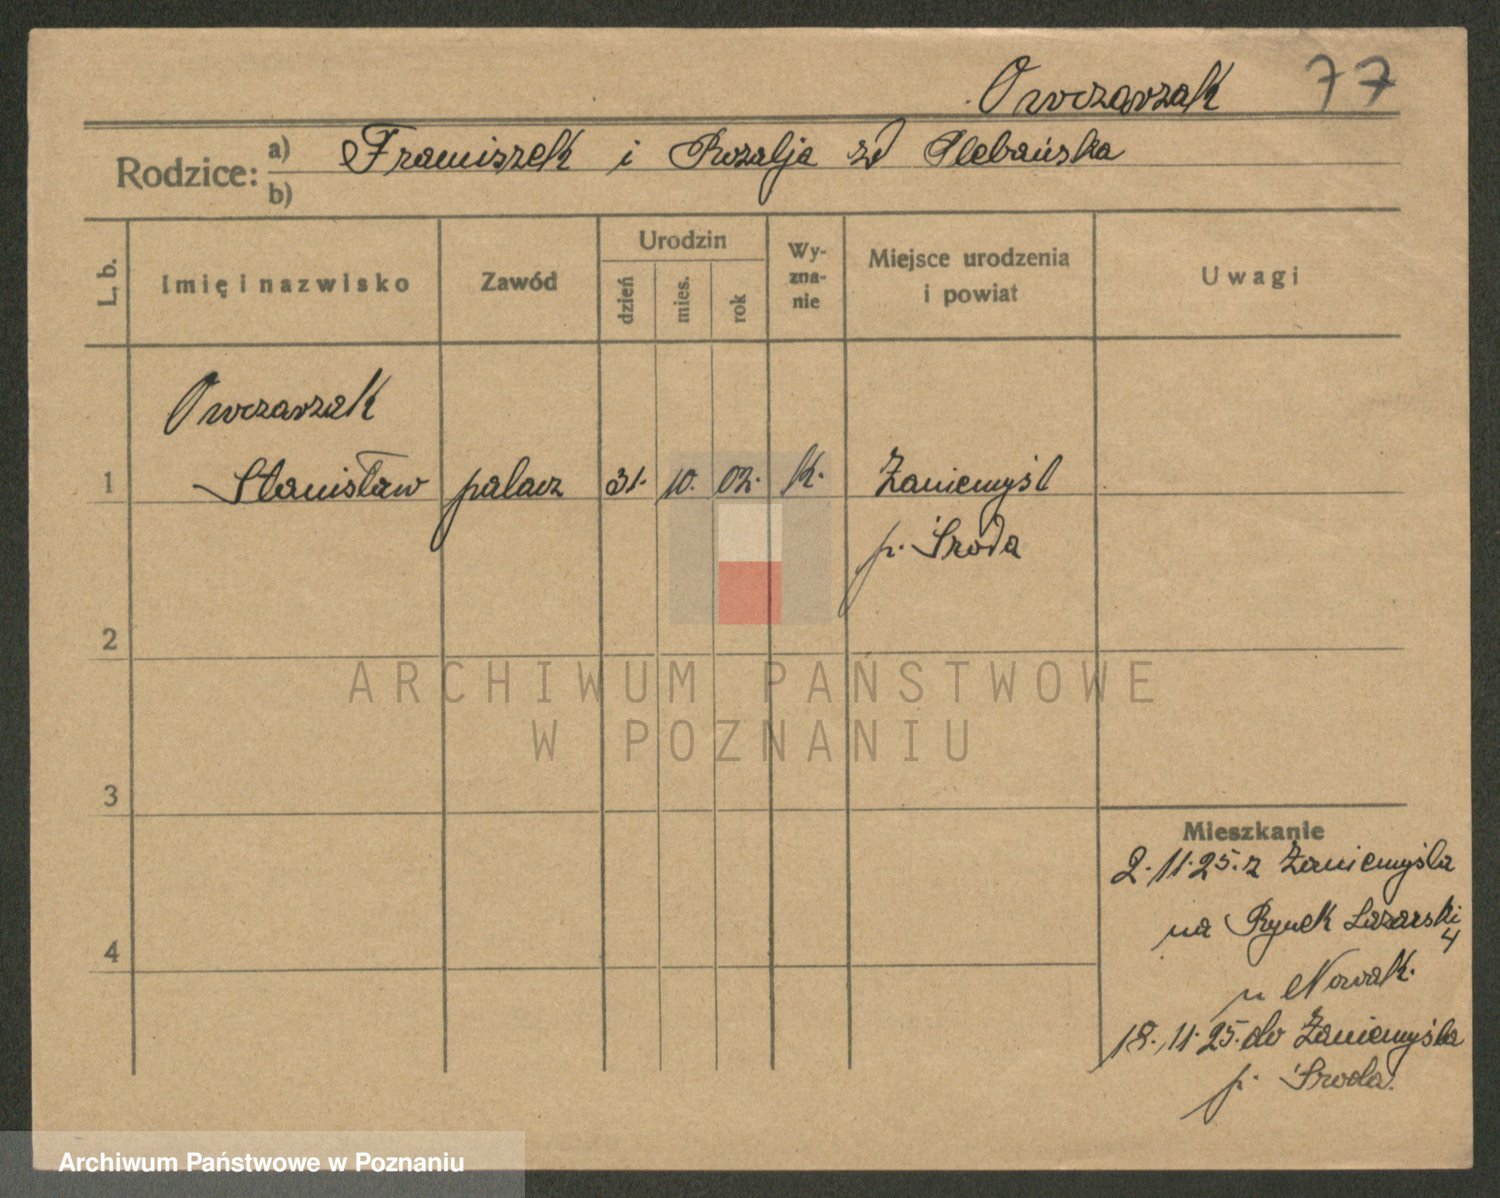 Owczarzak 77
Rodzice: a) Franciszek i Rozalja zd Plebańska
b)
L. b.
Imię i nazwisko
Zawód
Urodzin
dzień
mies.
rok
Wy-
zna-
nie
Miejsce urodzenia
i powiat
Uwagi
Owczarzak
1 Stanisław palacz 31. 10. 02. k. Zaniemyśl
p. Środa
2
3
4
Mieszkanie
2.11.25. z Zaniemyśla
na Rynek Łazarski
4
u Nowak.
18.11.25. do Zaniemyśla
p. Środa.
ARCHIWUM PAŃSTWOWE
W POZNANIU
Archiwum Państwowe w Poznaniu